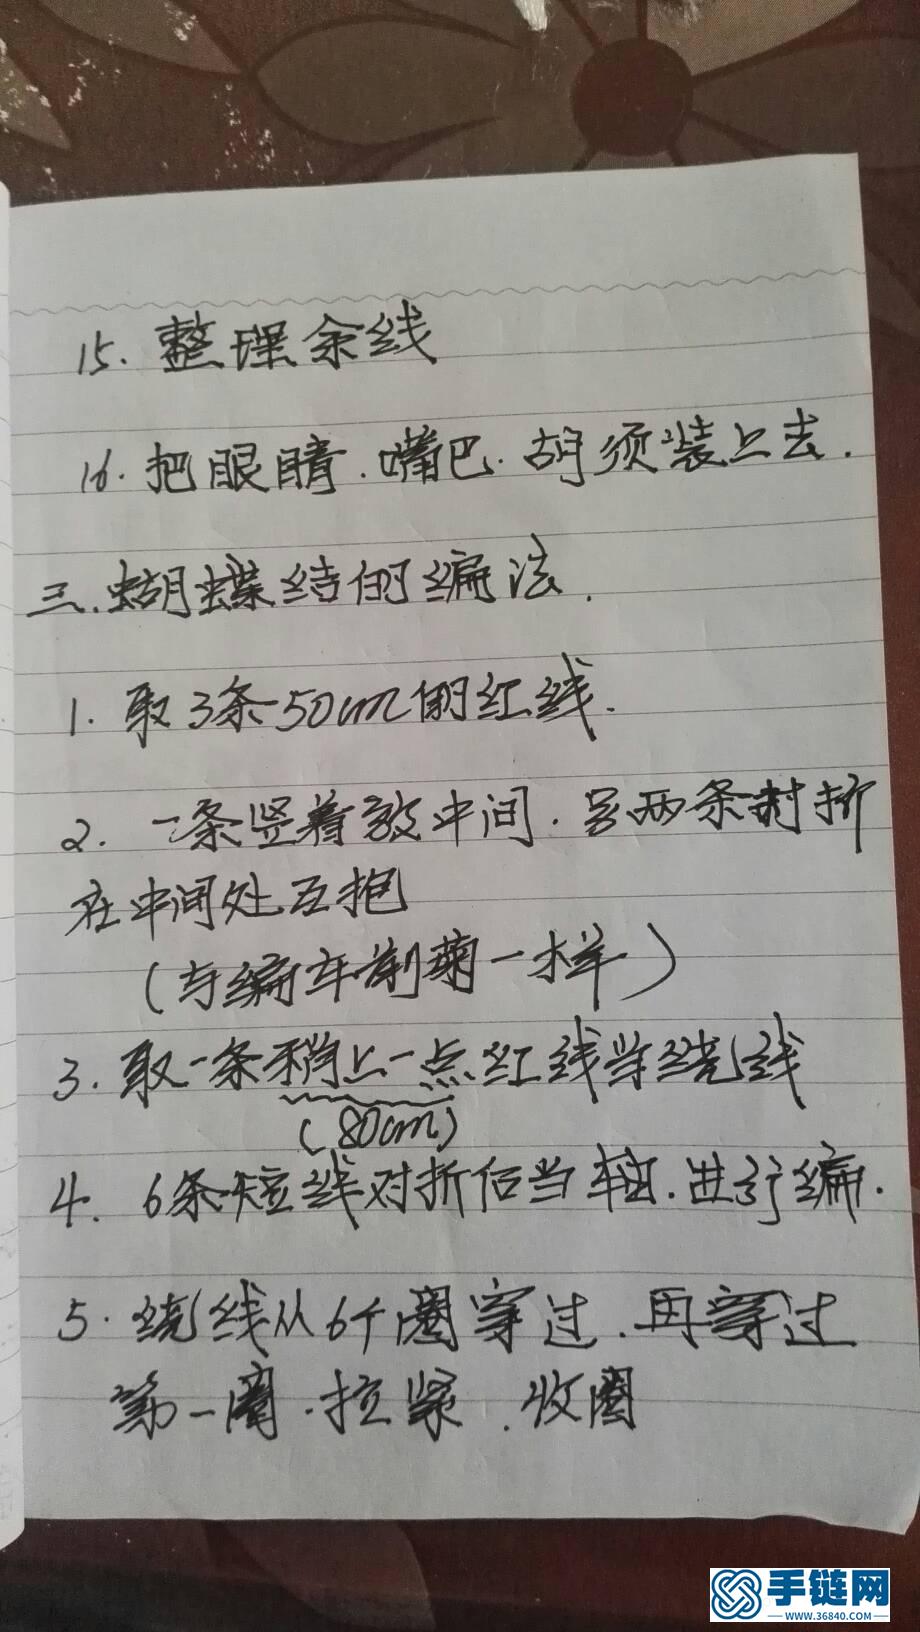 15. 整理余线
16. 把眼睛.嘴巴.胡须装上去.
三.蝴蝶结的编法.
1. 取3条50cm的红线.
2. 一条竖着放中间.另两条对折
在中间处互抱
(与编车前菊一样)
3. 取一条稍上一点红线当绕线
(80cm)
4. 6条短线对折后当轴.进行编.
5. 绕线从6个圈穿过.再穿过
第一圈.拉紧.收圈
手链网
WWW.36840.COM